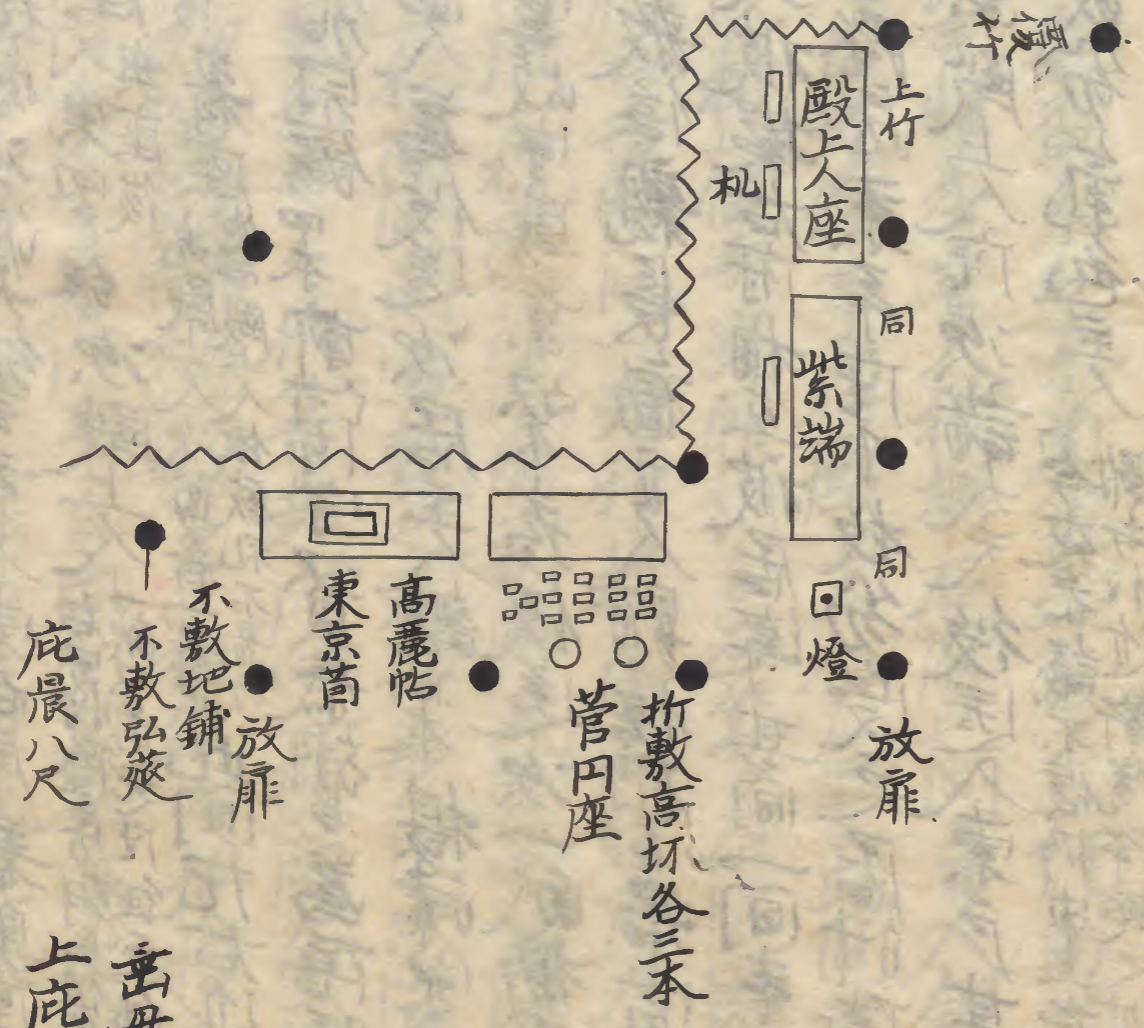 上竹
殿上人座
机
同
紫端
同
燈
放扉
折敷高坏各三本
菅円座
高麗帖
東京茵
放扉
不敷地鋪
不敷弘莚
庇晨八尺
上庇